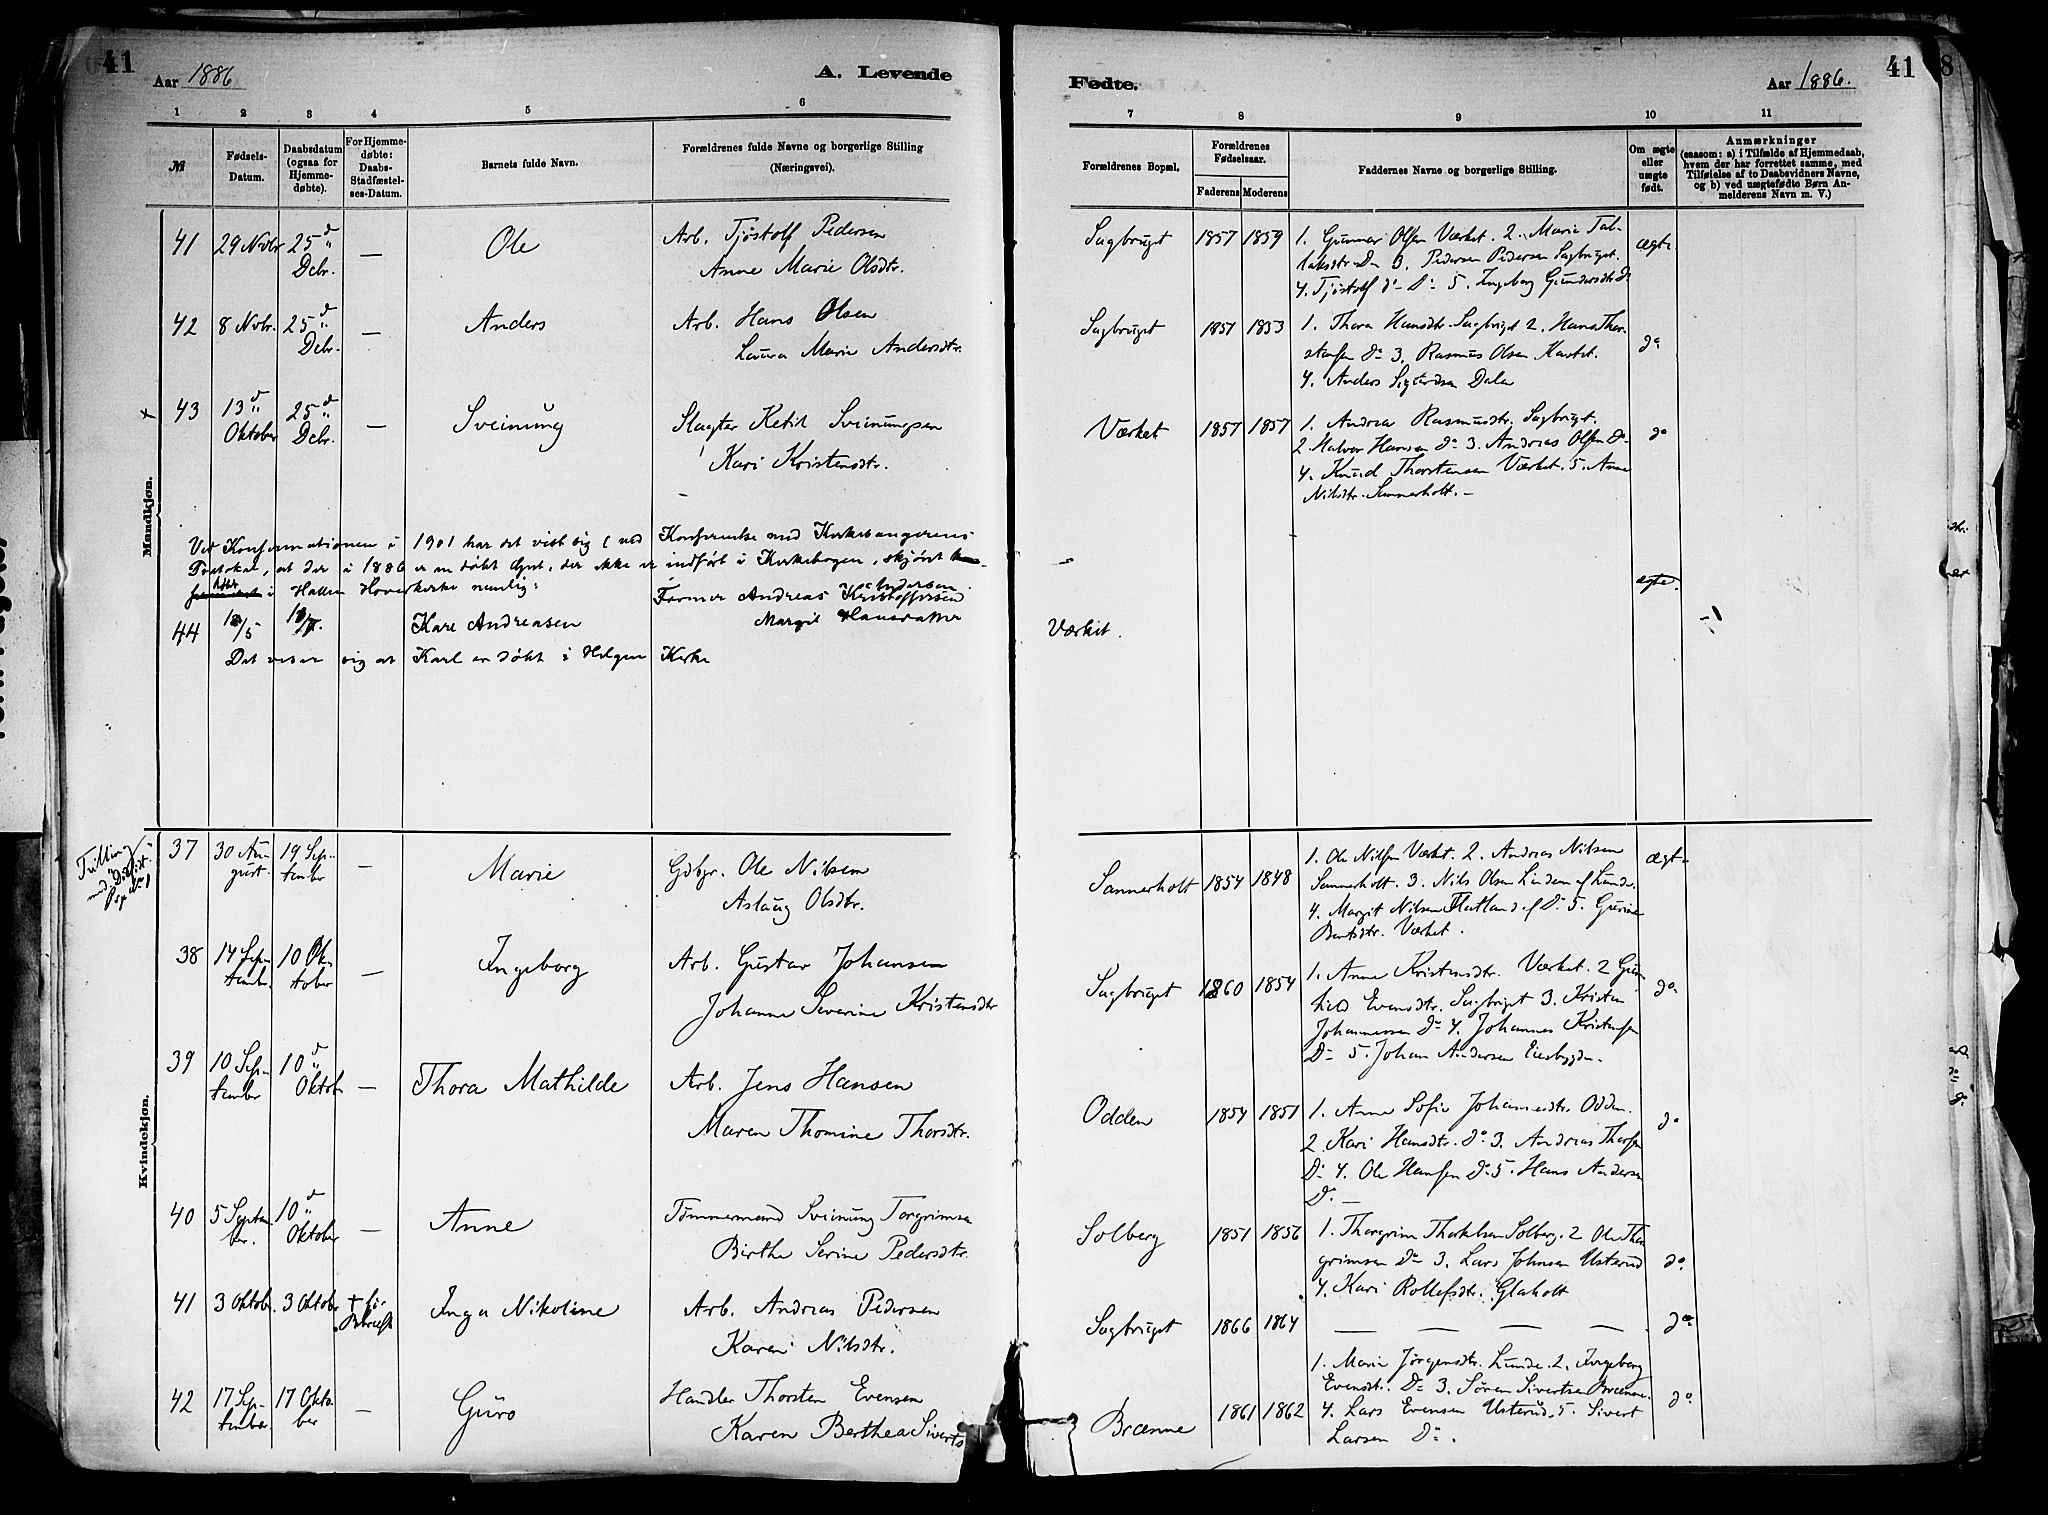 41
Aar 1886
A. Levende
1 2 3 4 5 6
№
Fødsels-Datum.
Daabsdatum (ogsaa for Hjemmedøbte).
For Hjemmedøbte: Daabs-Stadfæstelses-Datum.
Barnets fulde Navn.
Forældrenes fulde Navne og borgerlige Stilling (Næringsvei).
Mandkjøn.
41 29 Novbr 25d" Debr. — Ole Arb. Tjøstolf Pedersen
Anne Marie Olsdtr.
42 8 Novbr. 25d" Debr. — Anders Arb. Hans Olsen
Laura Marie Andersdtr.
× 43 13d" Oktober 25d" Debr. — Sveinung Slagter Ketil Sveinungsen
Kari Kristensdtr.
Ved Konfirmationen i 1901 har det vist sig (ved Konferentse med Kirkesangerens
Protokol, at der i 1886 er en døbt Gut, der ikke er indført i Kirkebogen, skjønt
i Hollen Hovedkirke nemlig:
44 18/5 Kare Andreasen Former Andreas Kristoffersen Andersen
Margit Hansdatter
Det viser sig at Karl er døbt i Helgen Kirke
Kvindekjøn.
Trilling med "Dødfødt" Pag No 1
37 30 August 19 September Marie Gdbgr. Ole Nilsen
Aslaug Olsdtr.
38 14 September 10 Oktober — Ingeborg Arb. Gustav Johansen
Johanne Severine Kristensdtr
39 10 September 10d" Oktober — Thora Mathilde Arb. Jens Hansen
Maren Thomine Thorsdtr.
40 5 September. 10d" Oktober — Anne Tømmermand Sveinung Torgrimsen
Birthe Serine Pedersdtr.
41 3 Oktobr. 3 Oktobr Inga Nikoline Arb. Andreas Pedersen
Karen Nilsdtr.
42 17 September. 17 Oktober — Guro Handler Thorsten Evensen
Karen Berthea Siverts
Fødte.
Aar 1886.
41
7 8 9 10 11
Forældrenes Bopæl.
Forældrenes Fødselsaar.
Faderens Moderens
Faddernes Navne og borgerlige Stilling.
Om ægte eller uægte født.
Anmærkninger
(saasom: a) i Tilfælde af Hjemmedaab, hvem der har forrettet samme, med Tilføielse af to Daabsvidners Navne, og b) ved uægtefødte Børn Anmelderens Navn m. V.)
Sagbruget 1857 1859 1. Gunnar Olsen Værket. 2. Marie Tal-
laksdtr Do 3. Pedersen Pedersen Sagbruget.
4. Tjøstolf do Do 5. Ingeborg Gundersdtr Do
ægte
Sagbruget 1851 1853 1. Thora Hansdtr. Sagbruget 2. Hans Thor-
stensen Do 3. Rasmus Olsen Kastet.
4. Anders Sigurdsen Dalen
do
Værket 1857 1857 1. Andrea Rasmusdtr. Sagbruget.
2. Halvor Hansen Do 3. Andreas Olsen Do
4. Knud Thorstensen Værket. 5. Anne
Nilsdtr. Sannerholt. —
do
ægte.
Værket.
Sannerholt 1854 1848 1. Ole Nilsen Værket. 2. Andreas Nilsen
Sannerholt. 3. Nils Olsen Linden af Lunde.
4. Margit Nilsen Flatland af Do 5. Gurine
Bentsdtr. Værket.
ægte
Sagbruget 1860 1854 1. Anne Kristensdtr. Værket. 2 Gun-
hild Evensdtr. Sagbruget 3. Kristen
Johannessen Do 4. Johannes Kristensen
Do 5. Johan Andersen Eiesbygden.
do
Odden 1854 1851 1. Anne Sofie Johannesdtr. Odden.
2. Kari Hansdtr. Do 3. Andreas Thorsen
Do 4. Ole Hansen Do 5. Hans Andersen
Do —
do
Solberg 1851 1856 1. Thorgrim Thorkelsen Solberg. 2 Ole Thor-
grimsen Do 3. Lars Johnsen Usterud
4. Kari Rollefsdtr. Glaholt
do.
Sagbruget 1866 1864 — — — — do
Brænne 1861 1862 1. Marie Jørgensdtr. Lunde. 2. Ingeborg
Evensdtr. Do 3. Søren Sivertsen Brænne.
4. Lars Evensen Usterud. 5. Sivert
Larsen Do.
do